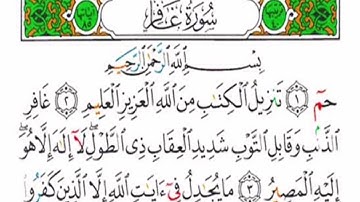 سُورَةُ غَافِرٍ
بِسْمِ ٱللَّهِ ٱلرَّحْمَٰنِ ٱلرَّحِيمِ
حمٓ ١ تَنزِيلُ ٱلْكِتَٰبِ مِنَ ٱللَّهِ ٱلْعَزِيزِ ٱلْعَلِيمِ ٢ غَافِرِ
ٱلذَّنۢبِ وَقَابِلِ ٱلتَّوْبِ شَدِيدِ ٱلْعِقَابِ ذِى ٱلطَّوْلِ لَآ إِلَٰهَ إِلَّا هُوَ
إِلَيْهِ ٱلْمَصِيرُ ٣ مَا يُجَٰدِلُ فِىٓ ءَايَٰتِ ٱللَّهِ إِلَّا ٱلَّذِينَ كَفَرُوا۟